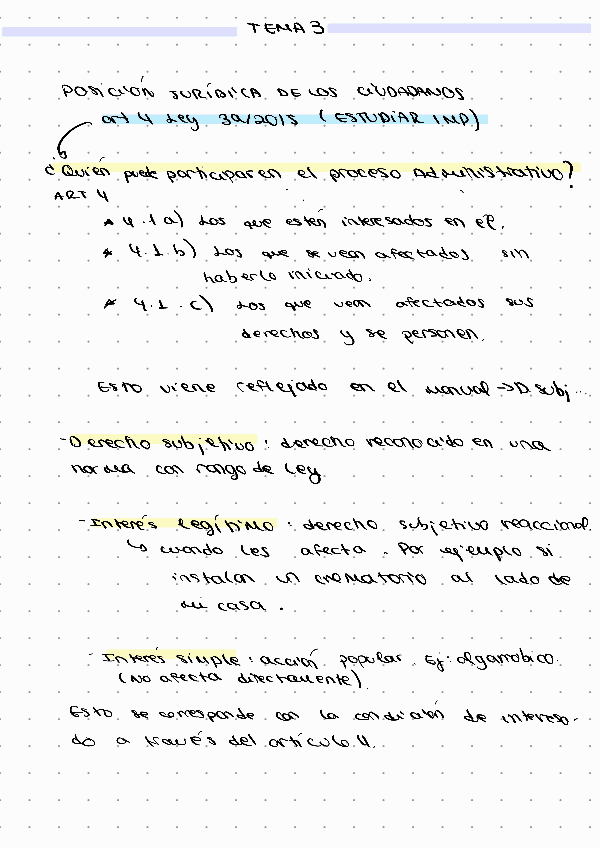 TEMA 3
POSICIÓN JURÍDICA DE LOS CIUDADANOS
art 4 Ley 39/2015 (ESTUDIAR IMP)
¿Quién puede participar en el proceso Administrativo?
ART 4
* 4.1 a) Los que estén interesados en él.
* 4.1.b) Los que se vean afectados sin
haberlo iniciado.
* 4.1.c) Los que vean afectados sus
derechos y se personen.
Esto viene reflejado en el manual → D. Subj...
- Derecho subjetivo: derecho reconocido en una
norma con rango de Ley
- Interés legítimo: derecho subjetivo reaccional.
↳ cuando les afecta. Por ejemplo si
instalan un crematorio al lado de
su casa.
- Interés simple: acción popular. Ej: algarrobico.
(No afecta directamente)
Esto se corresponde con la condición de interesa-
do a través del artículo 4.